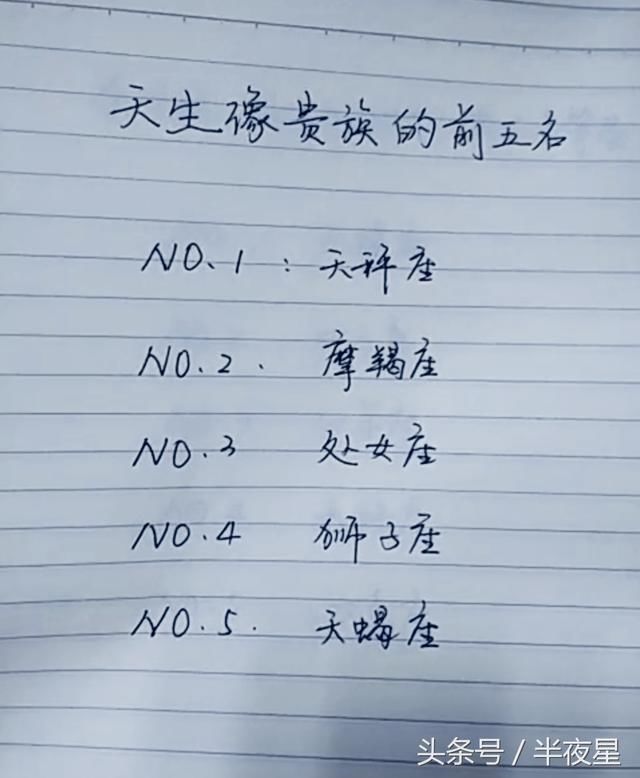 天生像贵族的前五名
NO.1：天秤座
NO.2. 摩羯座
NO.3 处女座
NO.4 狮子座
NO.5. 天蝎座
头条号／半夜星